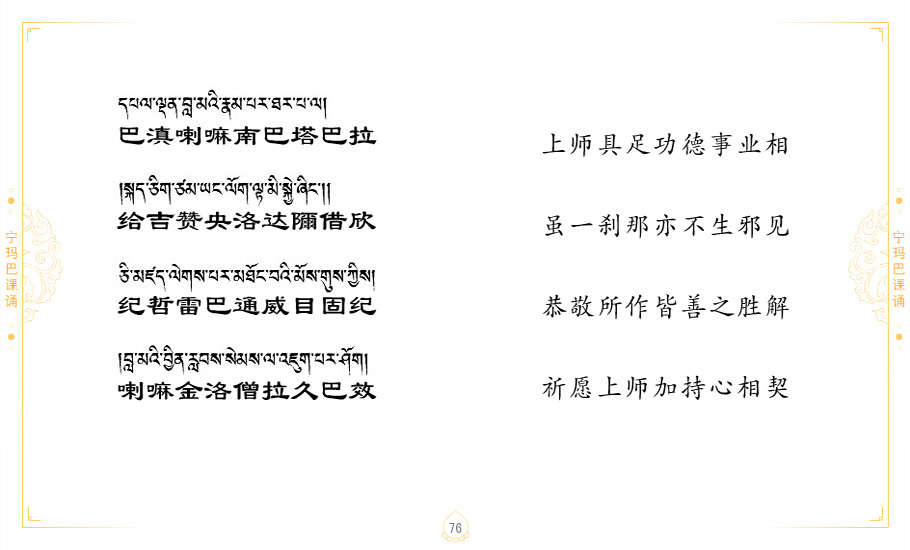 དཔལ་ལྡན་བླ་མའི་རྣམ་པར་ཐར་པ་ལ།
巴滇喇嘛南巴塔巴拉
།སྐད་ཅིག་ཙམ་ཡང་ལོག་ལྟ་མི་སྐྱེ་ཞིང་།།
给吉赞央洛达隬借欣
ཅི་མཛད་ལེགས་པར་མཐོང་བའི་མོས་གུས་ཀྱིས།
纪哲雷巴通威目固纪
།བླ་མའི་བྱིན་རླབས་སེམས་ལ་འཇུག་པར་ཤོག།
喇嘛金洛僧拉久巴效
上师具足功德事业相
虽一刹那亦不生邪见
恭敬所作皆善之胜解
祈愿上师加持心相契
宁玛巴课诵
宁玛巴课诵
76